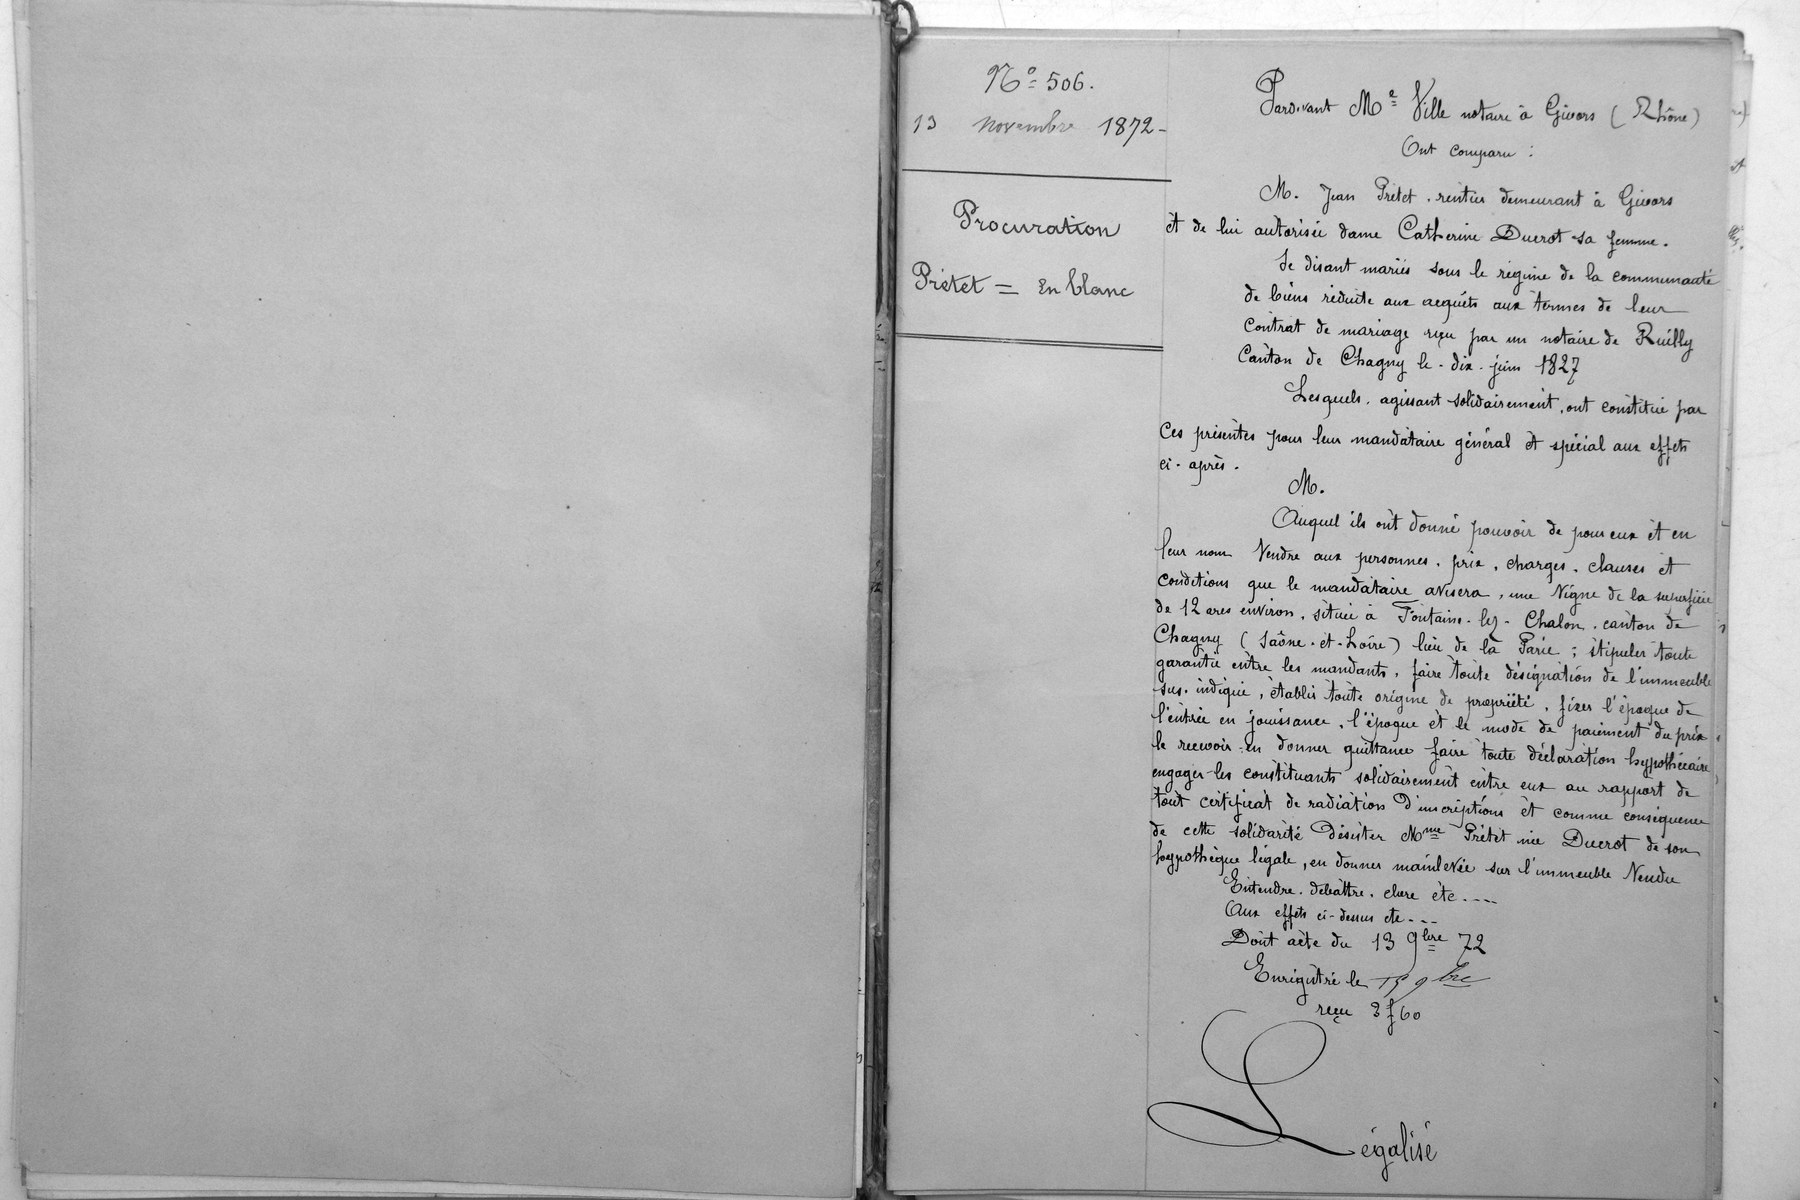 No = 506.
13 novembre 1872 -
Procuration
Prétet = en blanc
Pardevant Me Ville notaire à Givors (Rhône)
Ont comparu :
M. Jean Prétet, rentier demeurant à Givors
et de lui autorisée dame Catherine Ducrot sa femme.
Se disant mariés sous le régime de la communauté
de biens réduite aux acquêts aux termes de leur
contrat de mariage reçu par un notaire de Ruilly
Canton de Chagny le - dix - juin 1827
Lesquels, agissant solidairement, ont constitué par
Ces présentes pour leur mandataire général et spécial aux effets
ci-après.
M.
Auquel ils ont donné pouvoir de pour eux et en
leur nom Vendre aux personnes, prix, charges, clauses et
conditions que le mandataire avisera, une Vigne de la superficie
de 12 ares environ, située à Fontaine-lez-Chalon, canton de
Chagny (Saône-et-Loire) lieu de la Parie ; stipuler toute
garantie entre les mandants, faire toute désignation de l'immeuble
sus-indiqué, établir toute origine de propriété, fixer l'époque de
l'entrée en jouissance, l'époque et le mode de paiement du prix
le recevoir, en donner quittance faire toute déclaration hypothécaire
engager les constituants solidairement entre eux au rapport de
tout certificat de radiation d'inscriptions et comme conséquence
de cette solidarité Désister Mme Prétet née Ducrot de son
hypothèque légale, en donner mainlevée sur l'immeuble Vendu
Entendre, débattre, clore etc ----
Aux effets ci-dessus etc ---
Dont acte du 13 9bre 72
Enrégistré le 15 9bre
reçu 3f60
Légalisé